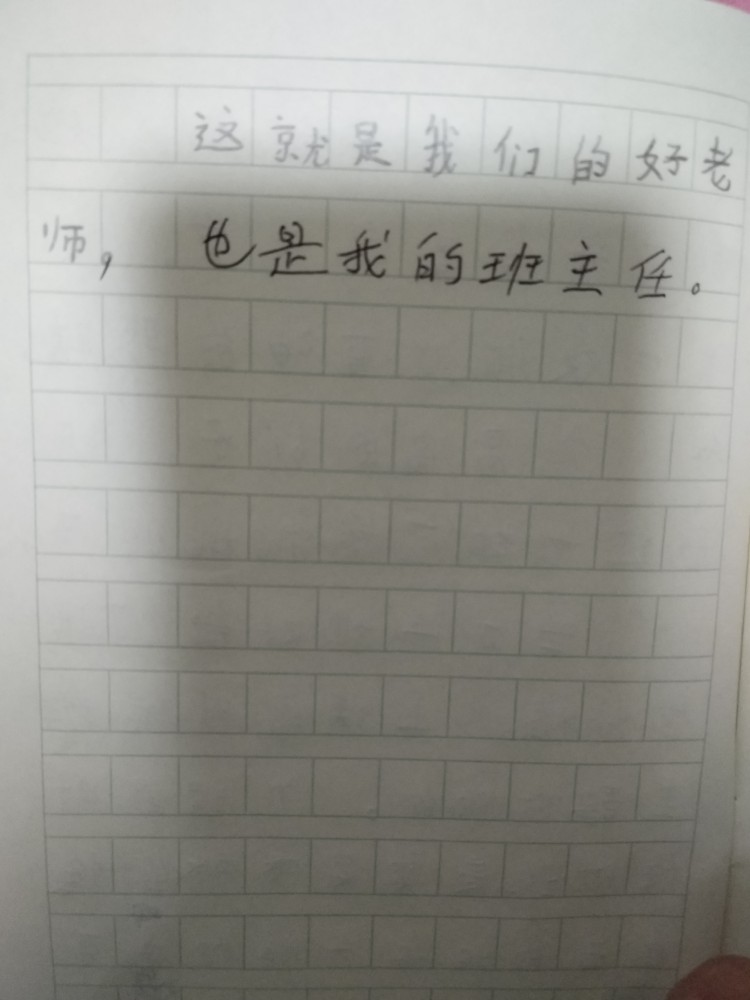 这就是我们的好老
师，也是我的班主任。